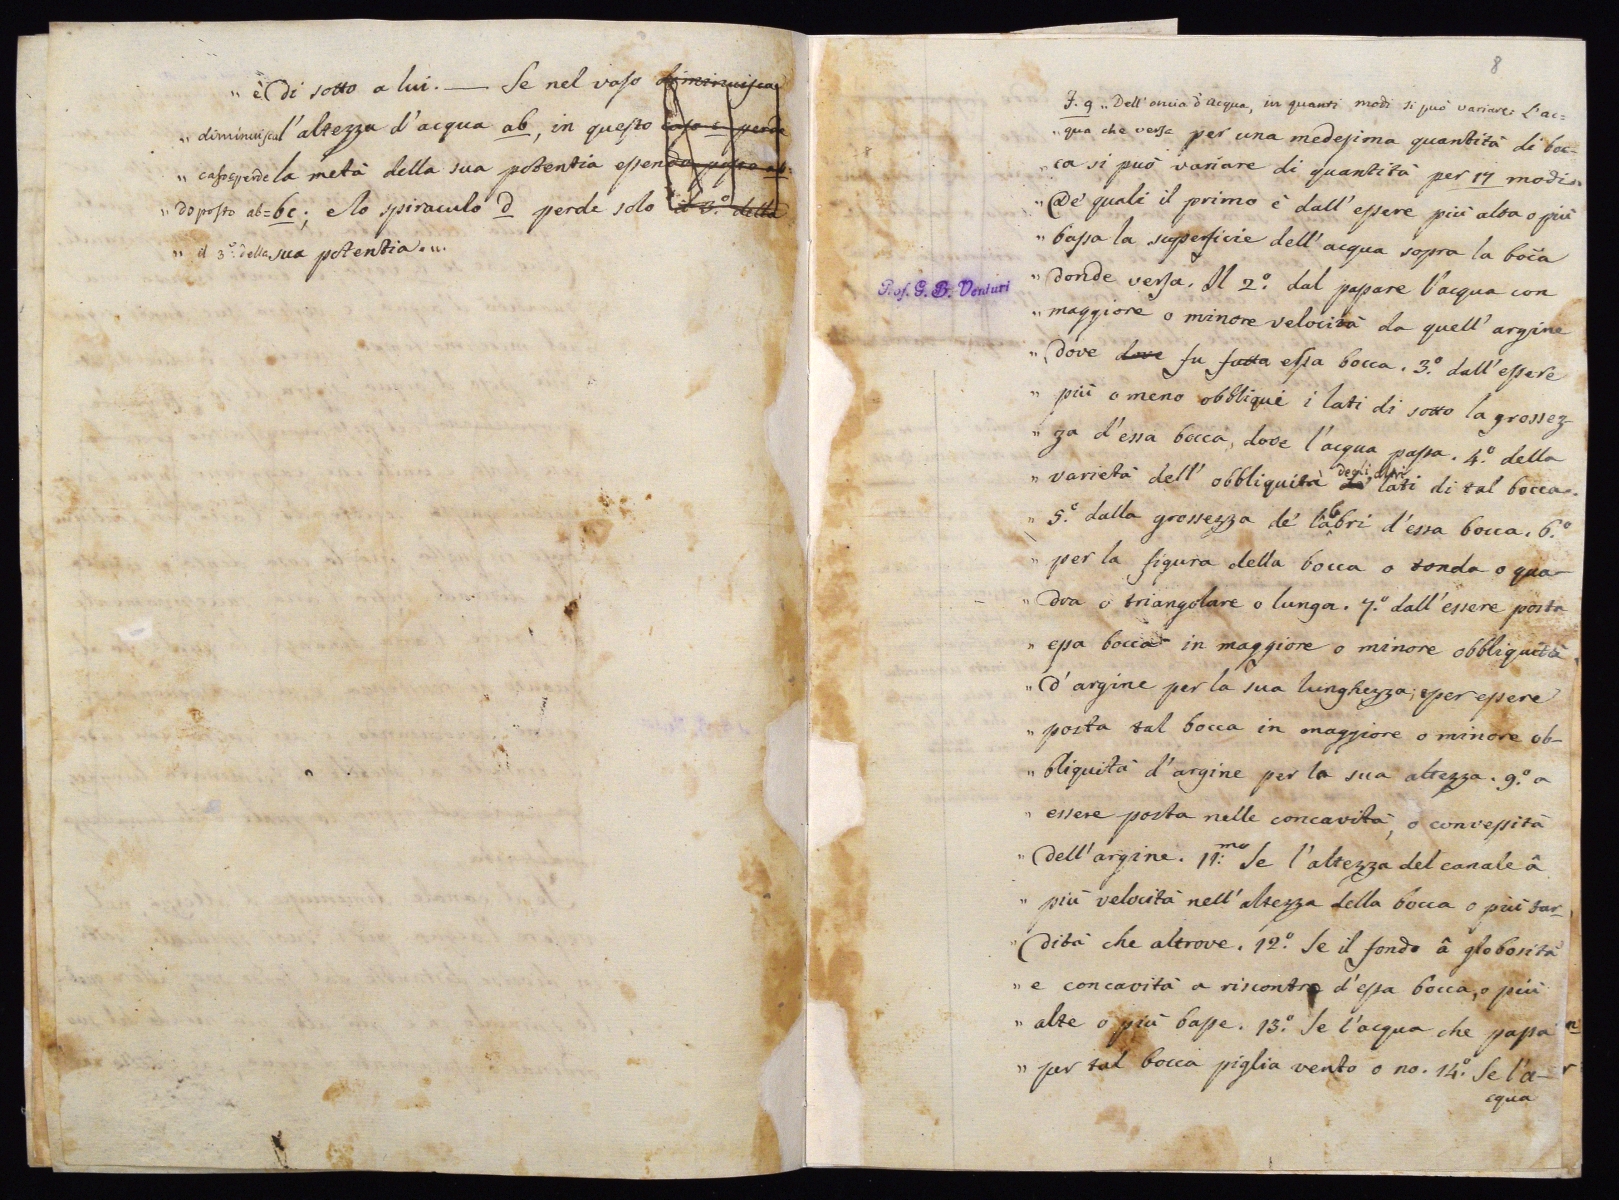 „ è di sotto a lui. — Se nel vaso diminuisca
„ diminuisca l'altezza d'acqua ab, in questo caso c perde
„ caso c perde la metà della sua potentia essendo posto ab=
„ do posto ab=bc; e lo spiraculo d perde solo il 3.º della
„ il 3.º della sua potentia.„.
8
F. 9 „ Dell'oncia d'acqua, in quanti modi si può variare: L'ac=
„ qua che versa per una medesima quantità di boc-
„ ca si può variare di quantità per 17 modi.
„ De' quali il primo è dall'essere più alta o più
„ bassa la superficie dell'acqua sopra la boca
„ donde versa. Il 2.º dal passare l'acqua con
Prof. G. B. Venturi
„ maggiore o minore velocità da quell'argine
„ dove dove fu fatta essa bocca. 3.º dall'essere
„ più o meno obblique i lati di sotto la grossez-
„ za d'essa bocca, dove l'acqua passa. 4.º della
„ varietà dell'obbliquità degli altri lati di tal bocca.
„ 5.º dalla grossezza de' labbri d'essa bocca. 6.º
„ per la figura della bocca o tonda o qua-
„ dra o triangolare o lunga. 7.º dall'essere posta
„ essa bocca in maggiore o minore obbliquità
„ d'argine per la sua lunghezza; per essere
„ posta tal bocca in maggiore o minore ob-
„ bliquità d'argine per la sua altezza. 9.º a
„ essere posta nelle concavità, o convessità
„ dell'argine. 11:mo Se l'altezza del canale â
„ più velocità nell'altezza della bocca o più tar-
„ dità che altrove. 12.º Se il fondo â globosità
„ e concavità a riscontro d'essa bocca, o più
„ alte o più basse. 13.º Se l'acqua che passa
„ per tal bocca piglia vento o no. 14.º Se l'a-
cqua